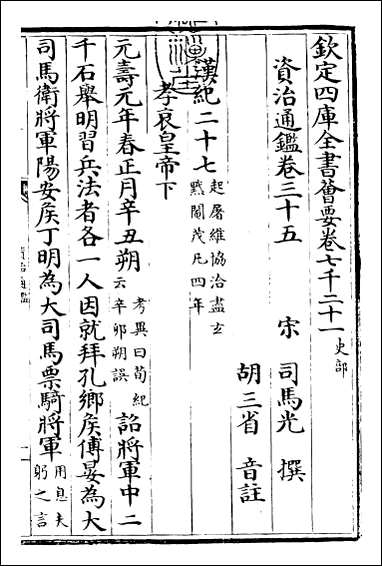 欽定四庫全書薈要卷七千二十一 史部
資治通鑑卷三十五
宋 司馬光 撰
胡三省 音註
漢紀二十七 起屠維協洽盡玄黓閹茂凡四年
孝哀皇帝下
元壽元年春正月辛丑朔 考異曰荀紀云辛卯朔誤 詔將軍中二
千石舉明習兵法者各一人因就拜孔鄉矦傅晏為大
司馬衛將軍陽安矦丁明為大司馬票騎將軍 用息夫躬之言